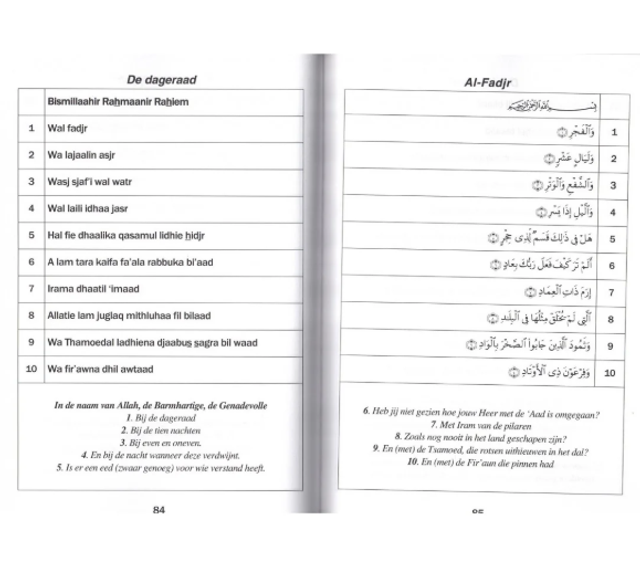 De dageraad
Bismillaahir Rahmaanir Rahiem
1 Wal fadjr
2 Wa lajaalin asjr
3 Wasj sjaf'i wal watr
4 Wal laili idhaa jasr
5 Hal fie dhaalika qasamul lidhie hidjr
6 A lam tara kaifa fa'ala rabbuka bi'aad
7 Irama dhaatil 'imaad
8 Allatie lam juglaq mithluhaa fil bilaad
9 Wa Thamoedal ladhiena djaabus sagra bil waad
10 Wa fir'awna dhil awtaad
In de naam van Allah, de Barmhartige, de Genadevolle
1. Bij de dageraad
2. Bij de tien nachten
3. Bij even en oneven.
4. En bij de nacht wanneer deze verdwijnt.
5. Is er een eed (zwaar genoeg) voor wie verstand heeft.
84
Al-Fadjr
بِسْمِ اللَّهِ الرَّحْمَٰنِ الرَّحِيمِ
وَٱلْفَجْرِ ١ 1
وَلَيَالٍ عَشْرٍ ٢ 2
وَٱلشَّفْعِ وَٱلْوَتْرِ ٣ 3
وَٱلَّيْلِ إِذَا يَسْرِ ٤ 4
هَلْ فِى ذَٰلِكَ قَسَمٌ لِّذِى حِجْرٍ ٥ 5
أَلَمْ تَرَ كَيْفَ فَعَلَ رَبُّكَ بِعَادٍ ٦ 6
إِرَمَ ذَاتِ ٱلْعِمَادِ ٧ 7
ٱلَّتِى لَمْ يُخْلَقْ مِثْلُهَا فِى ٱلْبِلَٰدِ ٨ 8
وَثَمُودَ ٱلَّذِينَ جَابُوا۟ ٱلصَّخْرَ بِٱلْوَادِ ٩ 9
وَفِرْعَوْنَ ذِى ٱلْأَوْتَادِ ١٠ 10
6. Heb jij niet gezien hoe jouw Heer met de 'Aad is omgegaan?
7. Met Iram van de pilaren
8. Zoals nog nooit in het land geschapen zijn?
9. En (met) de Tsamoed, die rotsen uithieuwen in het dal?
10. En (met) de Fir'aun die pinnen had
85